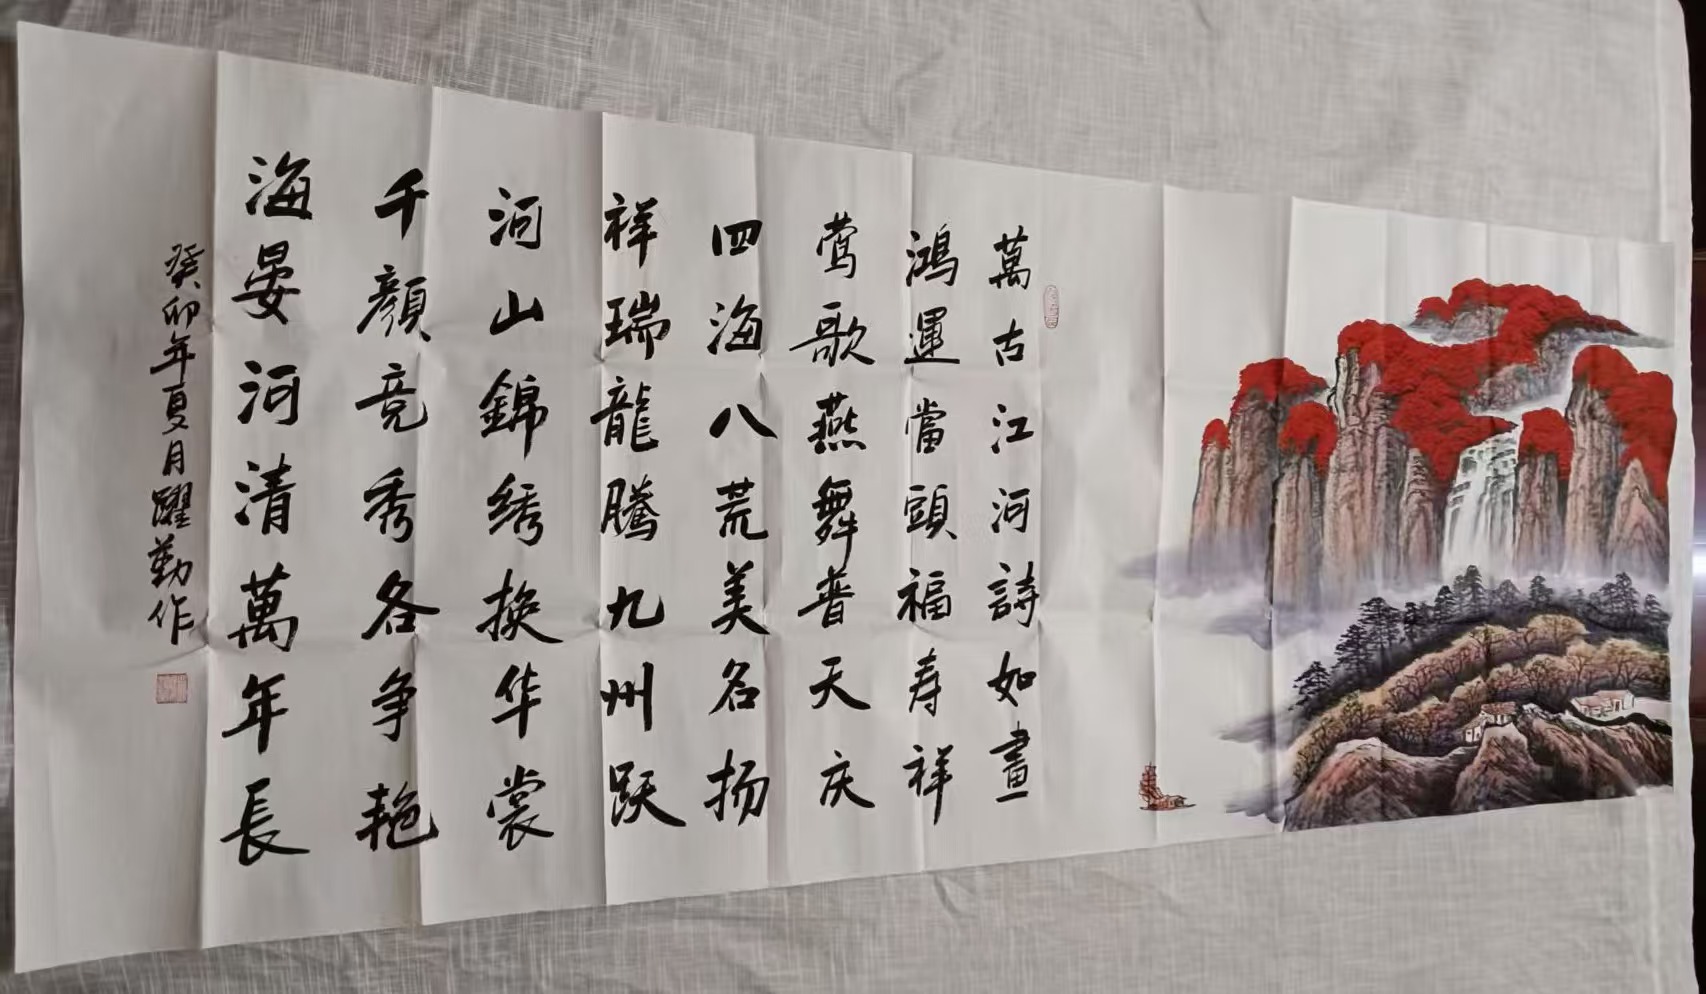 萬古江河詩如畫
鴻運當頭福寿祥
莺歌燕舞普天庆
四海八荒美名扬
祥瑞龍騰九州跃
河山錦绣换华裳
千顏竞秀各争艳
海晏河清萬年長
癸卯年夏月躍勤作